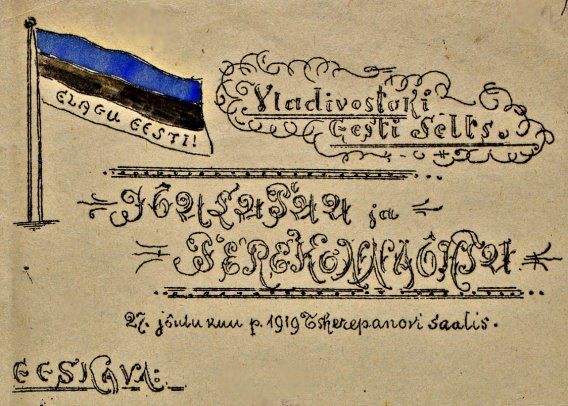 ELAGU EESTI!
Vladivostoki
Eesti Selts.
JÕULUPUU ja
PEREKONNAÕHTU.
27. jõulu kuu p. 1919 Tsherepanovi saalis.
EESKAVA: